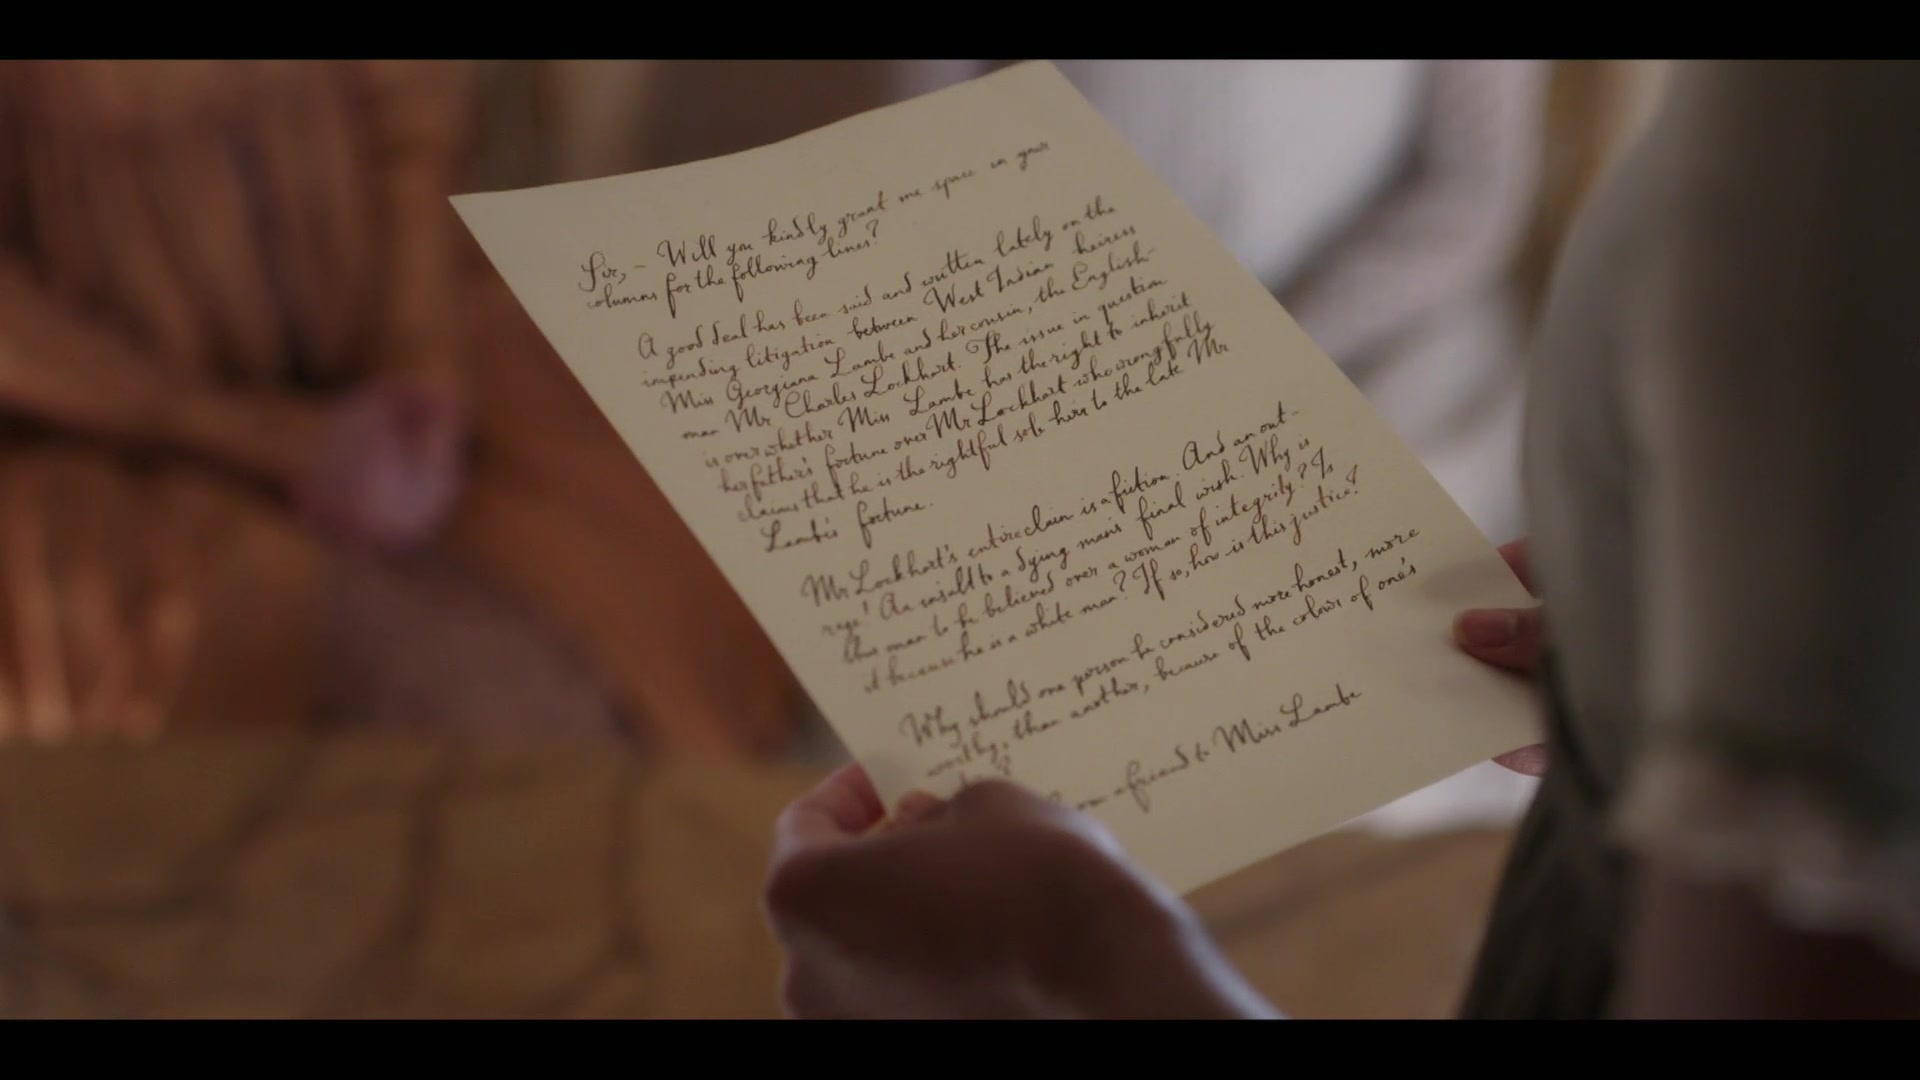 Sir, – Will you kindly grant me space in your
columns for the following lines?
A good deal has been said and written lately on the
impending litigation between West Indian heiress
Miss Georgiana Lambe and her cousin, the English-
man Mr Charles Lockhart. The issue in question
is over whether Miss Lambe has the right to inherit
her father's fortune over Mr Lockhart who wrongfully
claims that he is the rightful sole heir to the late Mr
Lambe's fortune.
Mr Lockhart's entire claim is a fiction. And an out-
rage! An insult to a dying man's final wish. Why is
this man to be believed over a woman of integrity? Is
it because he is a white man? If so, how is this justice?
Why should one person be considered more honest, more
worthy, than another, because of the colour of one's
a friend to Miss Lambe